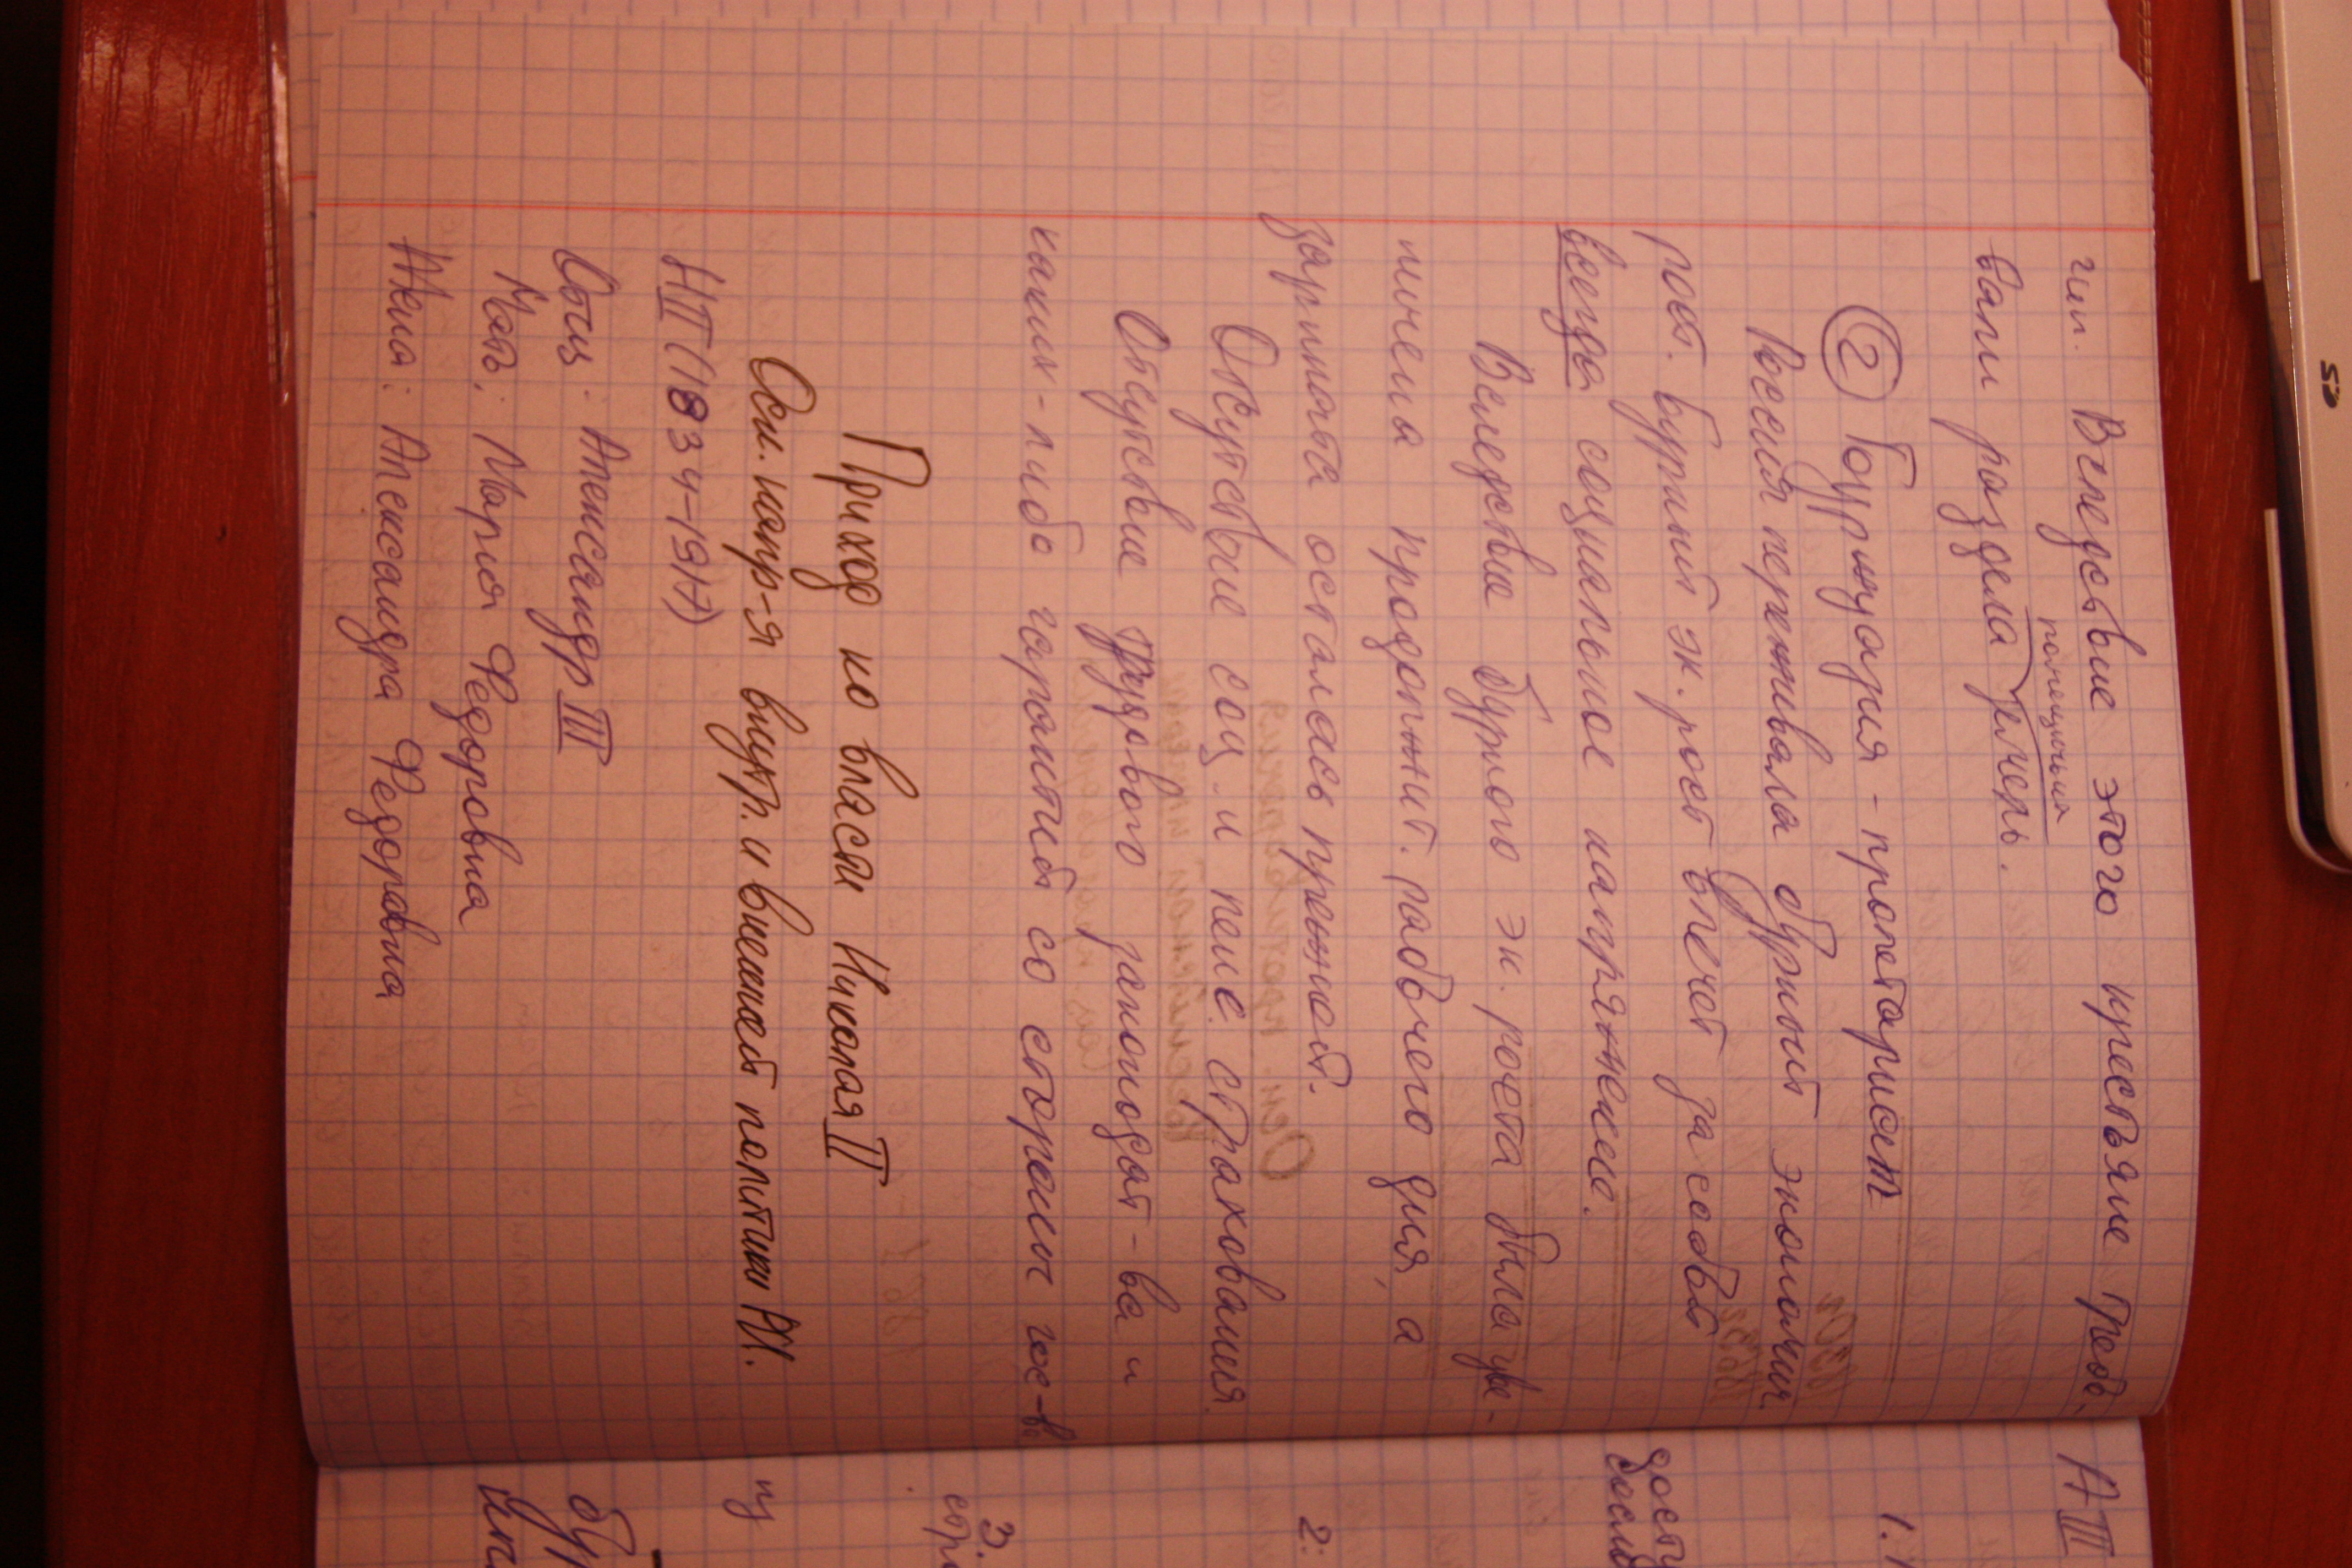 гии. Вследствие этого крестьяне требо-
помещичьих
вали раздела земель.
② Буржуазия - пролетариат
Россия переживала бурный экономич.
рост. Бурный эк. рост влечёт за собой
всегда социальное напряжение.
Вследствие бурного эк. роста была уве-
личена продолжит. рабочего дня, а
зарплата осталась прежней.
Отсутствие соц. и пенс. страхования.
Отсутствие трудового законодат-ва и
каких-либо гарантий со стороны гос-ва
Приход ко власти Николая II
Осн. напр-я внутр. и внешней политики НII.
НII (1894-1917)
Отец: Александр III
Мать: Мария Федоровна
Жена: Александра Федоровна
АIII
1.
2:
3.
из